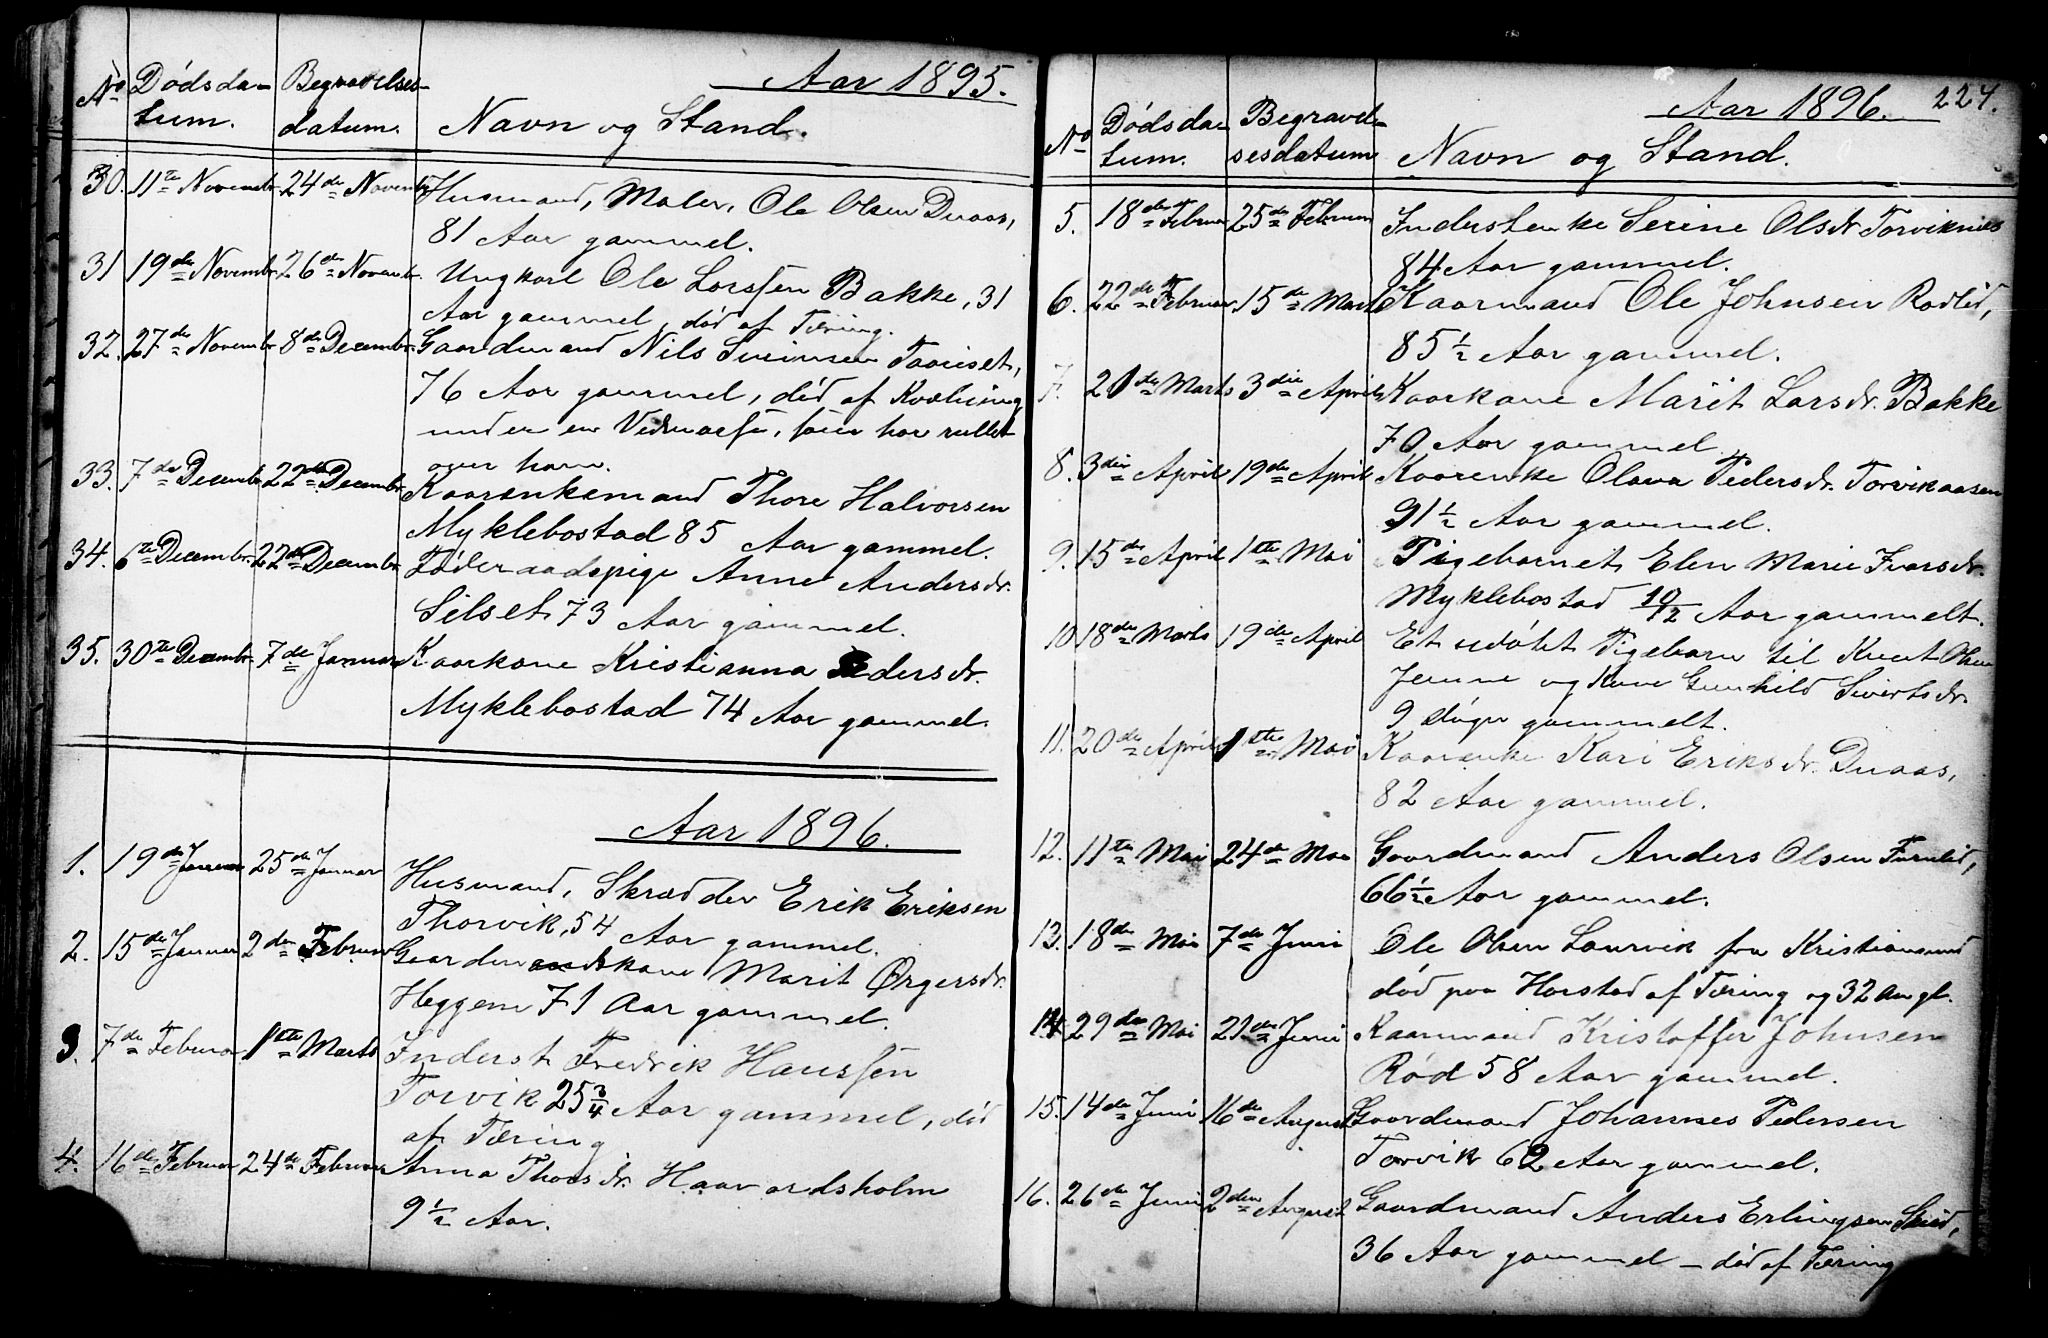 Aar 1895.
No Dødsda- Begravelses-
tum. datum. Navn og Stand.
30. 11te Novembr. 24de Novembr Husmand, Maler, Ole Olsen Duaas,
81 Aar gammel.
31 19de Novembr. 26de Novembr. Ungkarl Ole Larssen Bakke, 31
Aar gammel, død af Tæring.
32. 27de Novembr 8de Decembr. Gaardmand Nils
76 Aar gammel, død af Kvælning
under en har rullet
over ham.
33. 7de Decembr 22de Decembr. Kaarenkemand Thore Halvorsen
Myklebostad 85 Aar gammel.
34. 6te Decembr. 22de Decembr. Føderaadspige Anne Andersdr.
Silset 73 Aar gammel.
35. 30te Decembr 7de Januar Kaarkone Kristianna Pedersdr.
Myklebostad 74 Aar gammel.
Aar 1896.
1. 19de Januar 25de Januar Husmand, Skrædder Erik Eriksen
Thorvik, 54 Aar gammel.
2. 15de Januar 2den Februar Gaardmandskone Marit Ørgersdr.
Heggem 71 Aar gammel.
3. 7de Februar 1ste Marts Inderst Fredrik Hanssen
Torvik 25 3/4 Aar gammel, død
af Tæring
4. 16de Februar 24de Februar Anna Thorsdr. Haavardsholm
9 1/2 Aar.
Aar 1896. 224.
No Dødsda- Begravel-
tum. sesdatum Navn og Stand.
5. 18de Februar 25de Februar Inderstenke Serine Olsdr Torviknæs
84 Aar gammel.
6. 22de Februar 15de Marts Kaarmand Ole Johnsen Rødlid,
85 1/2 Aar gammel.
7. 20de Marts 3die April Kaarkone Marit Larsdr. Bakke
70 Aar gammel.
8. 3die April 19de April Kaarenke Olava Pedersdr. Torvikaasen
91 1/2 Aar gammel.
9. 15de April 1ste Mai Pigebarnet Elen Marie Ivarsdr.
Myklebostad 10/12 Aar gammelt.
10 18de Marts 19de April Et udøbt Pigebarn til Knut Olsen
og Kone Gunhild Sivertsdr.
9 Døgn gammelt.
11. 20de April 1ste Mai Kaarenke Kari Eriksdr. Duaas,
82 Aar gammel.
12. 11te Mai 24de Mai Gaardmand Anders Olsen Furulid,
66 1/2 Aar gammel.
13. 18de Mai 7de Juni Ole Olsen Laurvik fra Kristiansund
død paa Harstad af Tæring og 32 Aar gl.
14. 29de Mai 21de Juni Kaarmand Kristoffer Johnsen
Rød 58 Aar gammel.
15. 14de Juni 16de August Gaardmand Johannes Pedersen
Torvik 62 Aar gammel.
16. 26de Juni 2den August Gaardmand Anders Erlingsen
36 Aar gammel – død af Tæring